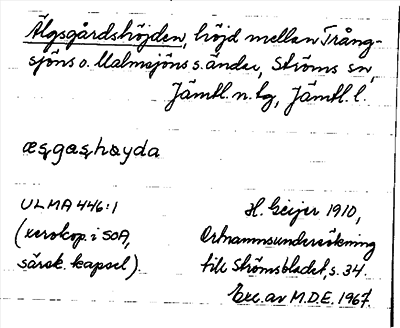 Älgsgårdshöjden, höjd mellan Trång-
sjöns o. Malmsjöns s. ändar, Ströms sn,
Jämtl. n. lg, Jämtl. l.
ULMA 446:1
(xerokop. i SOA,
särsk. kapsel)
H. Geijer 1910,
Ortnamnsundersökning
till Strömsbladet, s. 34.
Exc. av M.D.E. 1967.